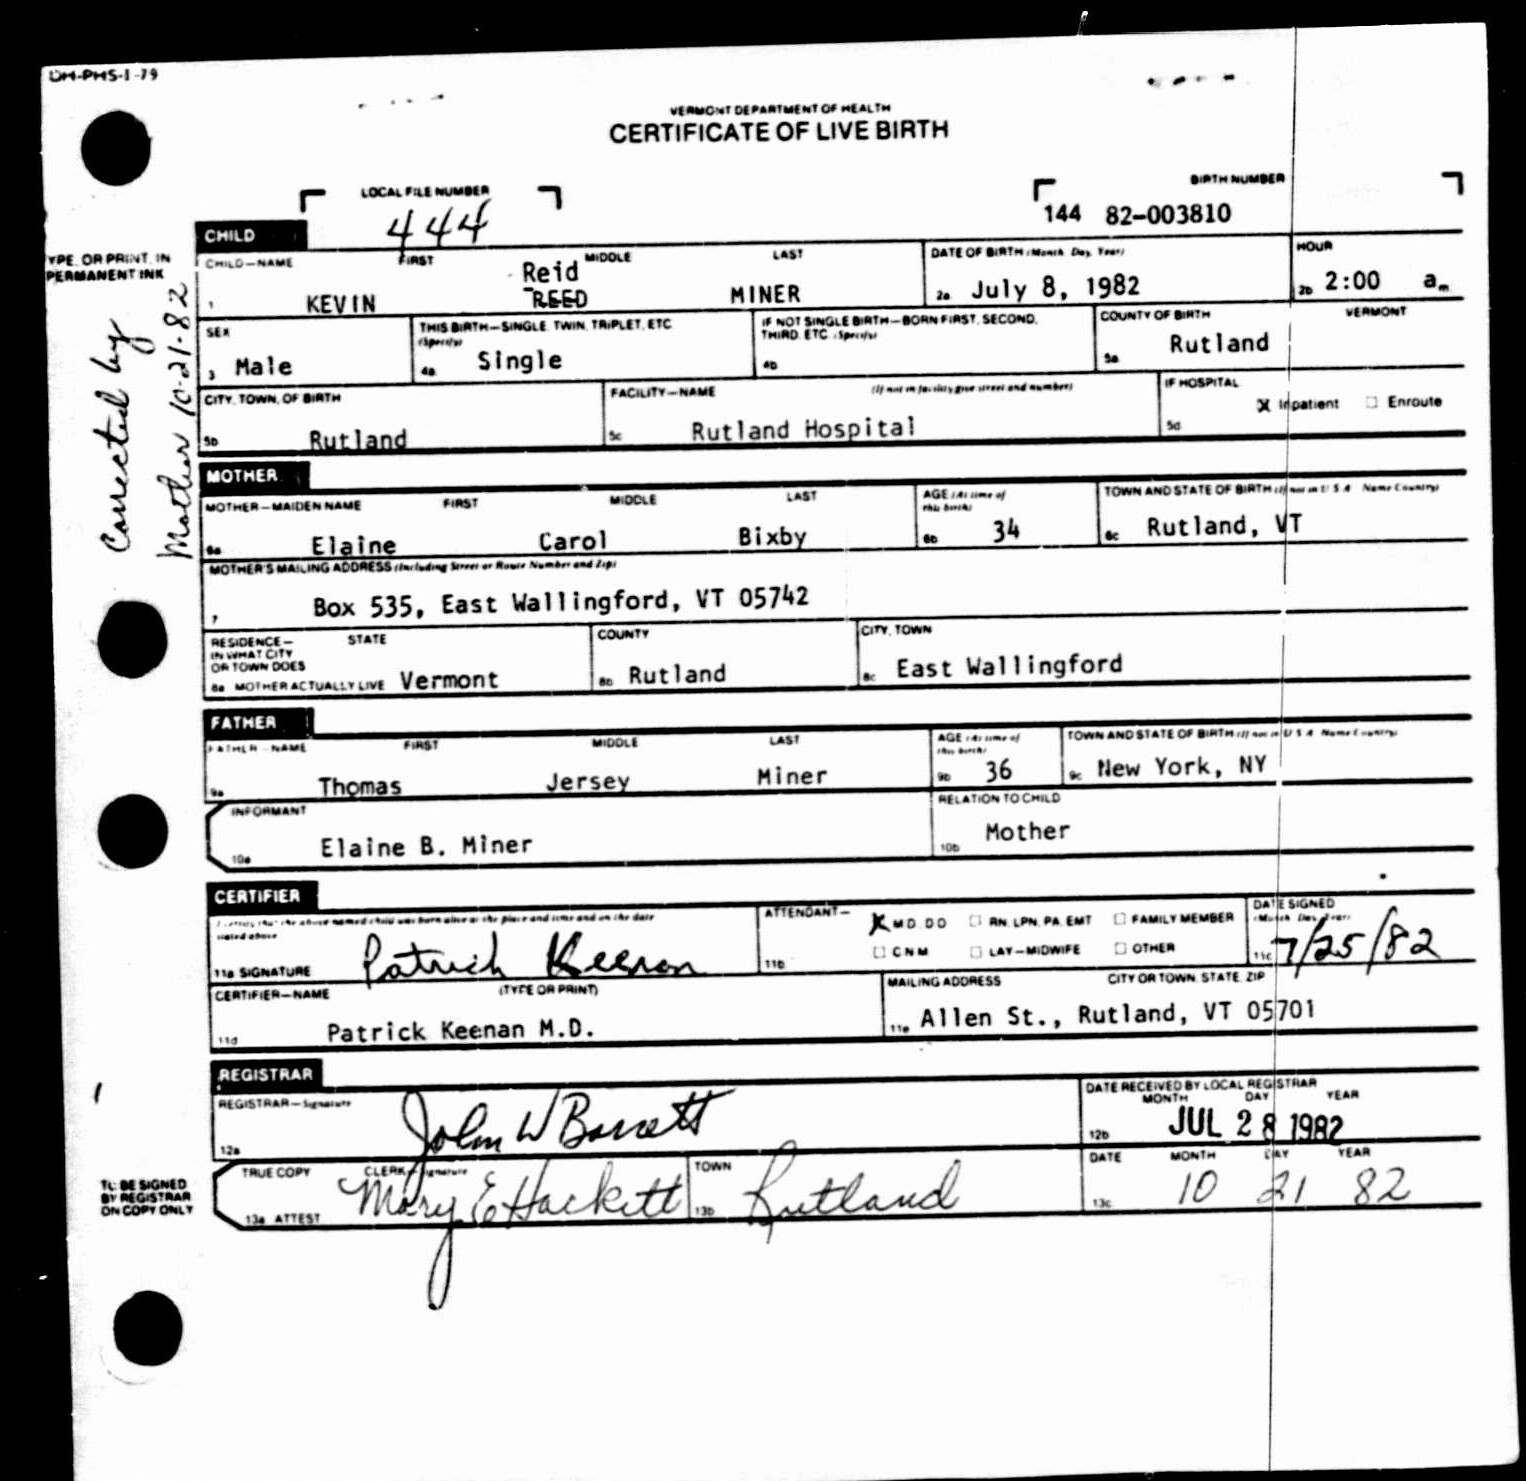 DH-PHS-1-79
VERMONT DEPARTMENT OF HEALTH
CERTIFICATE OF LIVE BIRTH
LOCAL FILE NUMBER
444
BIRTH NUMBER
144 82-003810
TYPE, OR PRINT, IN
PERMANENT INK
Corrected by
Mother 10-21-82
CHILD
CHILD—NAME FIRST MIDDLE LAST
Reid
1 KEVIN REED MINER
DATE OF BIRTH (Month, Day, Year)
2a July 8, 1982
HOUR
2b 2:00 a.m.
SEX
3 Male
THIS BIRTH—SINGLE, TWIN, TRIPLET, ETC
(Specify)
4a Single
IF NOT SINGLE BIRTH—BORN FIRST, SECOND,
THIRD, ETC (Specify)
4b
COUNTY OF BIRTH VERMONT
5a Rutland
CITY, TOWN, OF BIRTH
5b Rutland
FACILITY—NAME (If not in facility give street and number)
5c Rutland Hospital
IF HOSPITAL
5d X Inpatient ☐ Enroute
MOTHER
MOTHER—MAIDEN NAME FIRST MIDDLE LAST
6a Elaine Carol Bixby
AGE (At time of
this birth)
6b 34
TOWN AND STATE OF BIRTH (If not in U S A Name Country)
6c Rutland, VT
MOTHER'S MAILING ADDRESS (Including Street or Route Number and Zip)
7 Box 535, East Wallingford, VT 05742
RESIDENCE—
IN WHAT CITY
OR TOWN DOES
8a MOTHER ACTUALLY LIVE
STATE
Vermont
COUNTY
8b Rutland
CITY, TOWN
8c East Wallingford
FATHER
FATHER—NAME FIRST MIDDLE LAST
9a Thomas Jersey Miner
AGE (At time of
this birth)
9b 36
TOWN AND STATE OF BIRTH (If not in U S A Name Country)
9c New York, NY
INFORMANT
10a Elaine B. Miner
RELATION TO CHILD
10b Mother
CERTIFIER
I certify that the above named child was born alive at the place and time and on the date
stated above
11a SIGNATURE Patrick Keenan
ATTENDANT—
11b X M D, D O ☐ RN, LPN, PA, EMT ☐ FAMILY MEMBER
☐ C N M ☐ LAY—MIDWIFE ☐ OTHER
DATE SIGNED
(Month, Day, Year)
11c 7/25/82
CERTIFIER—NAME (TYPE OR PRINT)
11d Patrick Keenan M.D.
MAILING ADDRESS CITY OR TOWN, STATE, ZIP
11e Allen St., Rutland, VT 05701
REGISTRAR
REGISTRAR—Signature
12a John W Barrett
DATE RECEIVED BY LOCAL REGISTRAR
MONTH DAY YEAR
12b JUL 28 1982
TO BE SIGNED
BY REGISTRAR
ON COPY ONLY
TRUE COPY
13a ATTEST
CLERK—Signature
Mary E Hackett
TOWN
13b Rutland
DATE MONTH DAY YEAR
13c 10 21 82